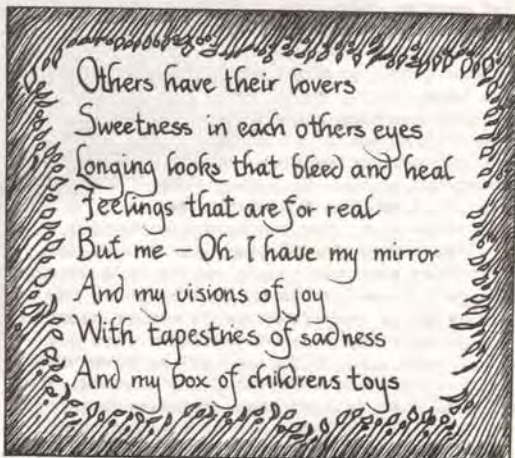 Others have their lovers
Sweetness in each others eyes
Longing looks that bleed and heal
Feelings that are for real
But me – Oh I have my mirror
And my visions of joy
With tapestries of sadness
And my box of childrens toys